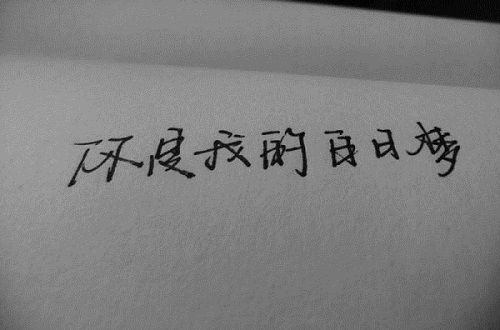 你是我的白日梦